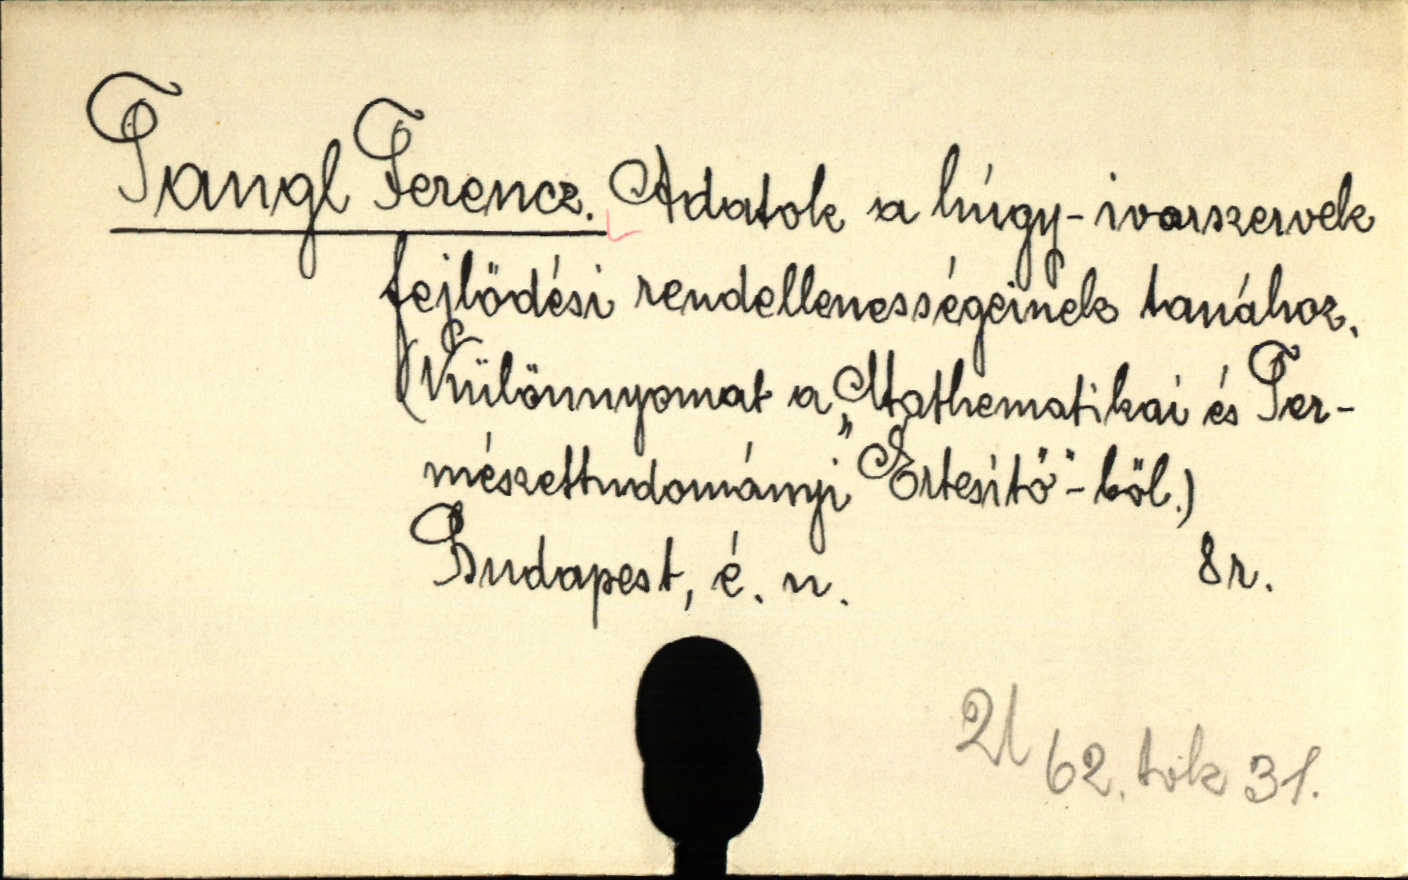 Tangl Ferencz. Adatok a húgy-ivarszervek
fejlödési rendellenességeinek tanához.
(Különnyomat a „Mathematikai és Ter-
mészettudományi Értesítő"-ből.)
Budapest, é. n. 8r.
21 62. tok 31.